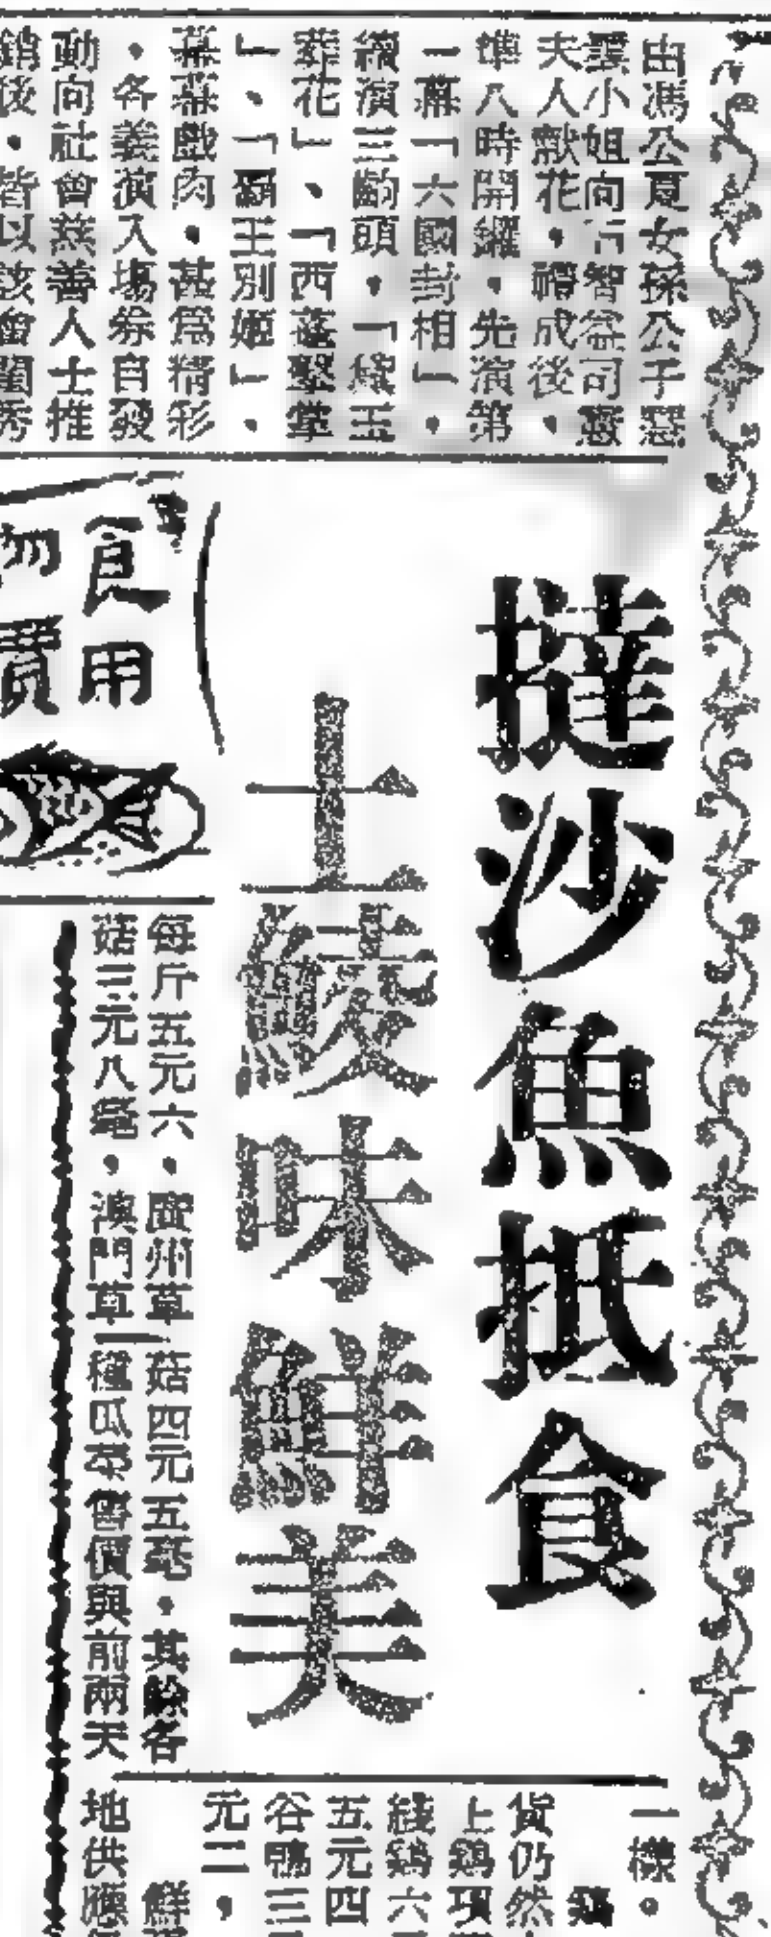 由馮公夏女孫公子慧
雲小姐向石智益司憲
夫人獻花，禮成後，
準八時開鑼，先演第
一幕「六國封相」，
續演三齣頭，「黛玉
葬花」、「西蓬擊掌
」、「霸王別姬」，
幕幕戲肉，甚為精彩
，各義演入場券自發
動向社會慈善人士推
銷後，皆以該會閨秀
撻沙魚抵食
土鯪味鮮美
食用
物價
每斤五元六，廣州草菇四元五毫，其餘各
菇三元八毫，澳門草種瓜菜售價與前兩天
一樣。
鷄
貨仍然
上鷄項
綫鷄六
五元四
谷鴨三
元二，
鮮
地供應